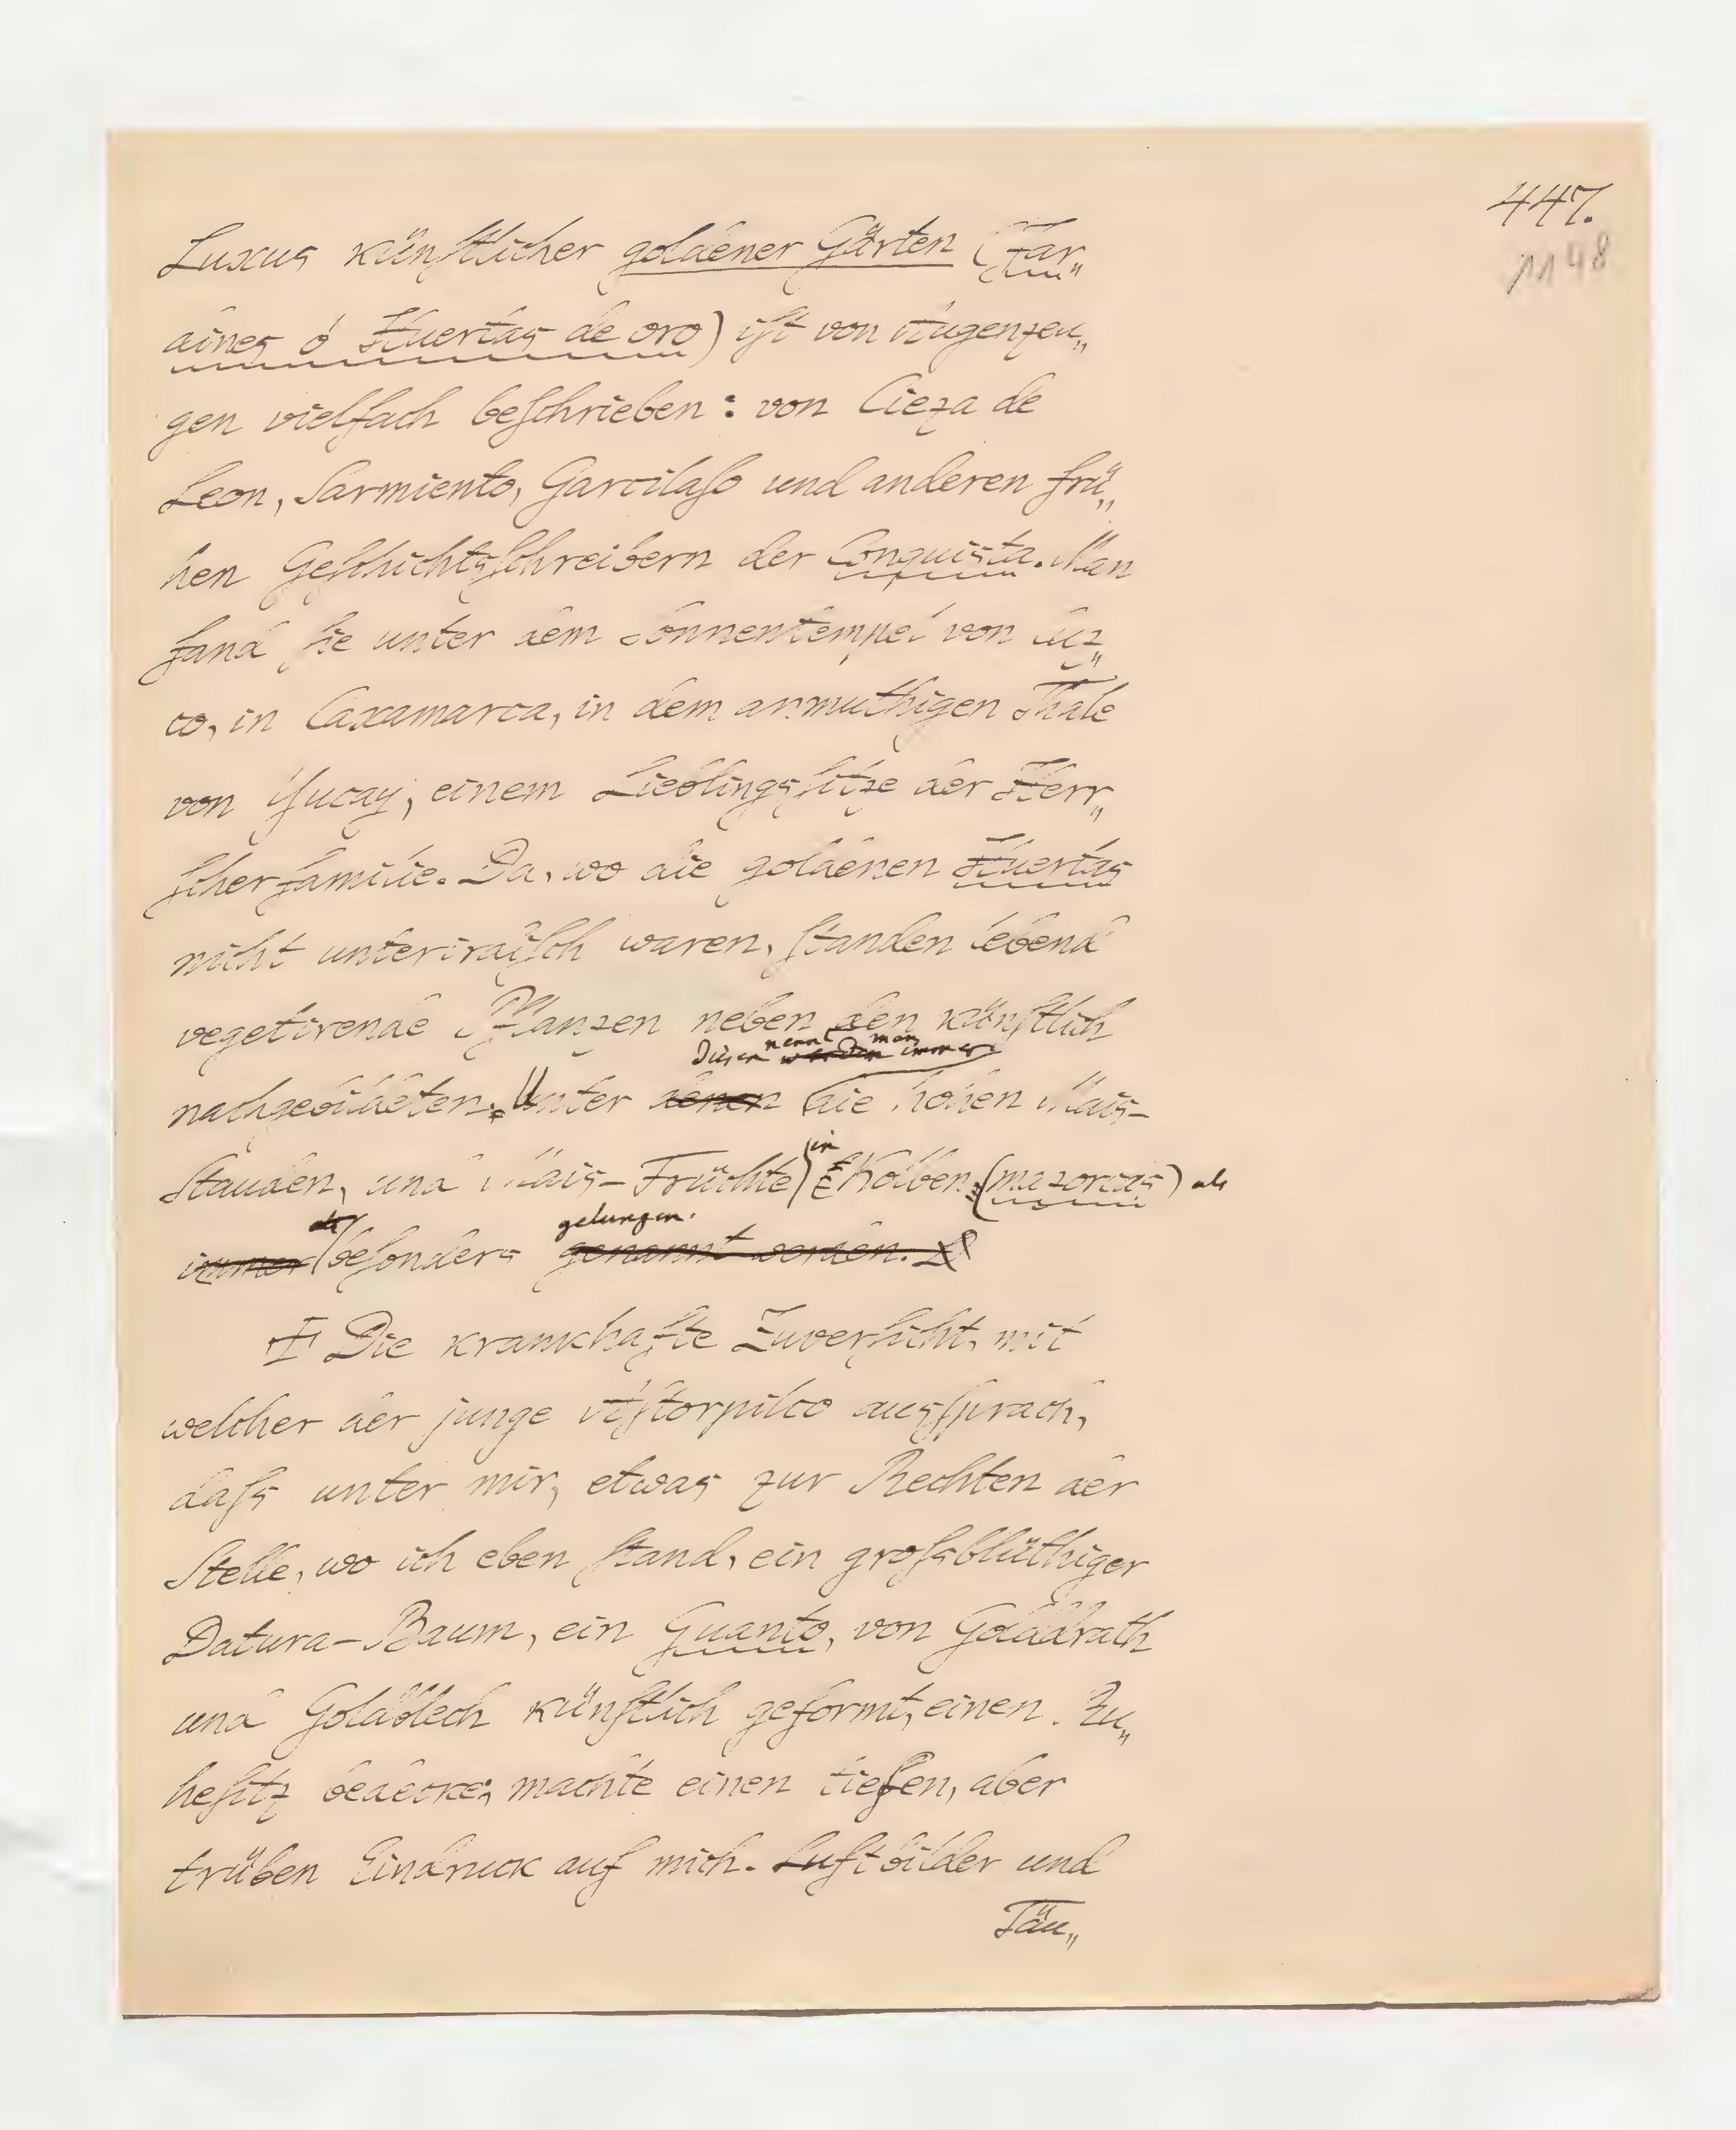 447.
1148
Luxus künstlicher goldener Gärten (Jar„
dines ó Huertas de oro) ist von Augenzeu„
gen vielfach beschrieben: von Cieza de
Leon, Sarmiento, Garcilaso und anderen frü„
hen Geschichtsschreibern der Conquista. Man
fand sie unter dem Sonnentempel von Cuz„
co, in Caxamarca, in dem anmuthigen Thale
von Yucay, einem Lieblingssitze der Herr„
scherfamilie. Da, wo die goldenen Huertas
nicht unterirdisch waren, standen lebend
vegetirende Pflanzen neben den künstlich
nennt man
diesen werden immer
nachgebildeten. Unter denen die hohen Mais-
in
Stauden, und Mais-Früchte Kolben (mazorcas) als
als gelungen.
immer besonders genannt werden.
Die krankhafte Zuversicht, mit
welcher der junge Astorpilco aussprach,
dass unter mir, etwas zur Rechten der
Stelle, wo ich eben stand, ein grossblüthiger
Datura-Baum, ein Guanto, von Golddrath
und Goldblech künstlich geformt, einen Ru„
hesitz bedecke; machte einen tiefen, aber
trüben Eindruck auf mich. Luftbilder und
Täu„